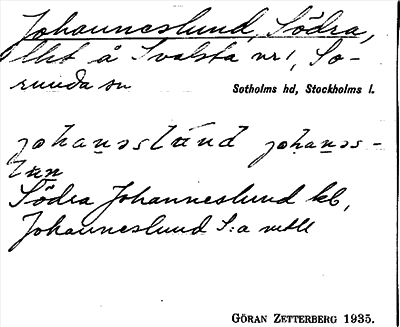 Johanneslund, Södra,
lht å Svalsta nr 1, So-
runda sn
Sotholms hd, Stockholms l.
johanəslúnd johanəs-
Södra Johanneslund kb,
Johanneslund S:a
GÖRAN ZETTERBERG 1935.